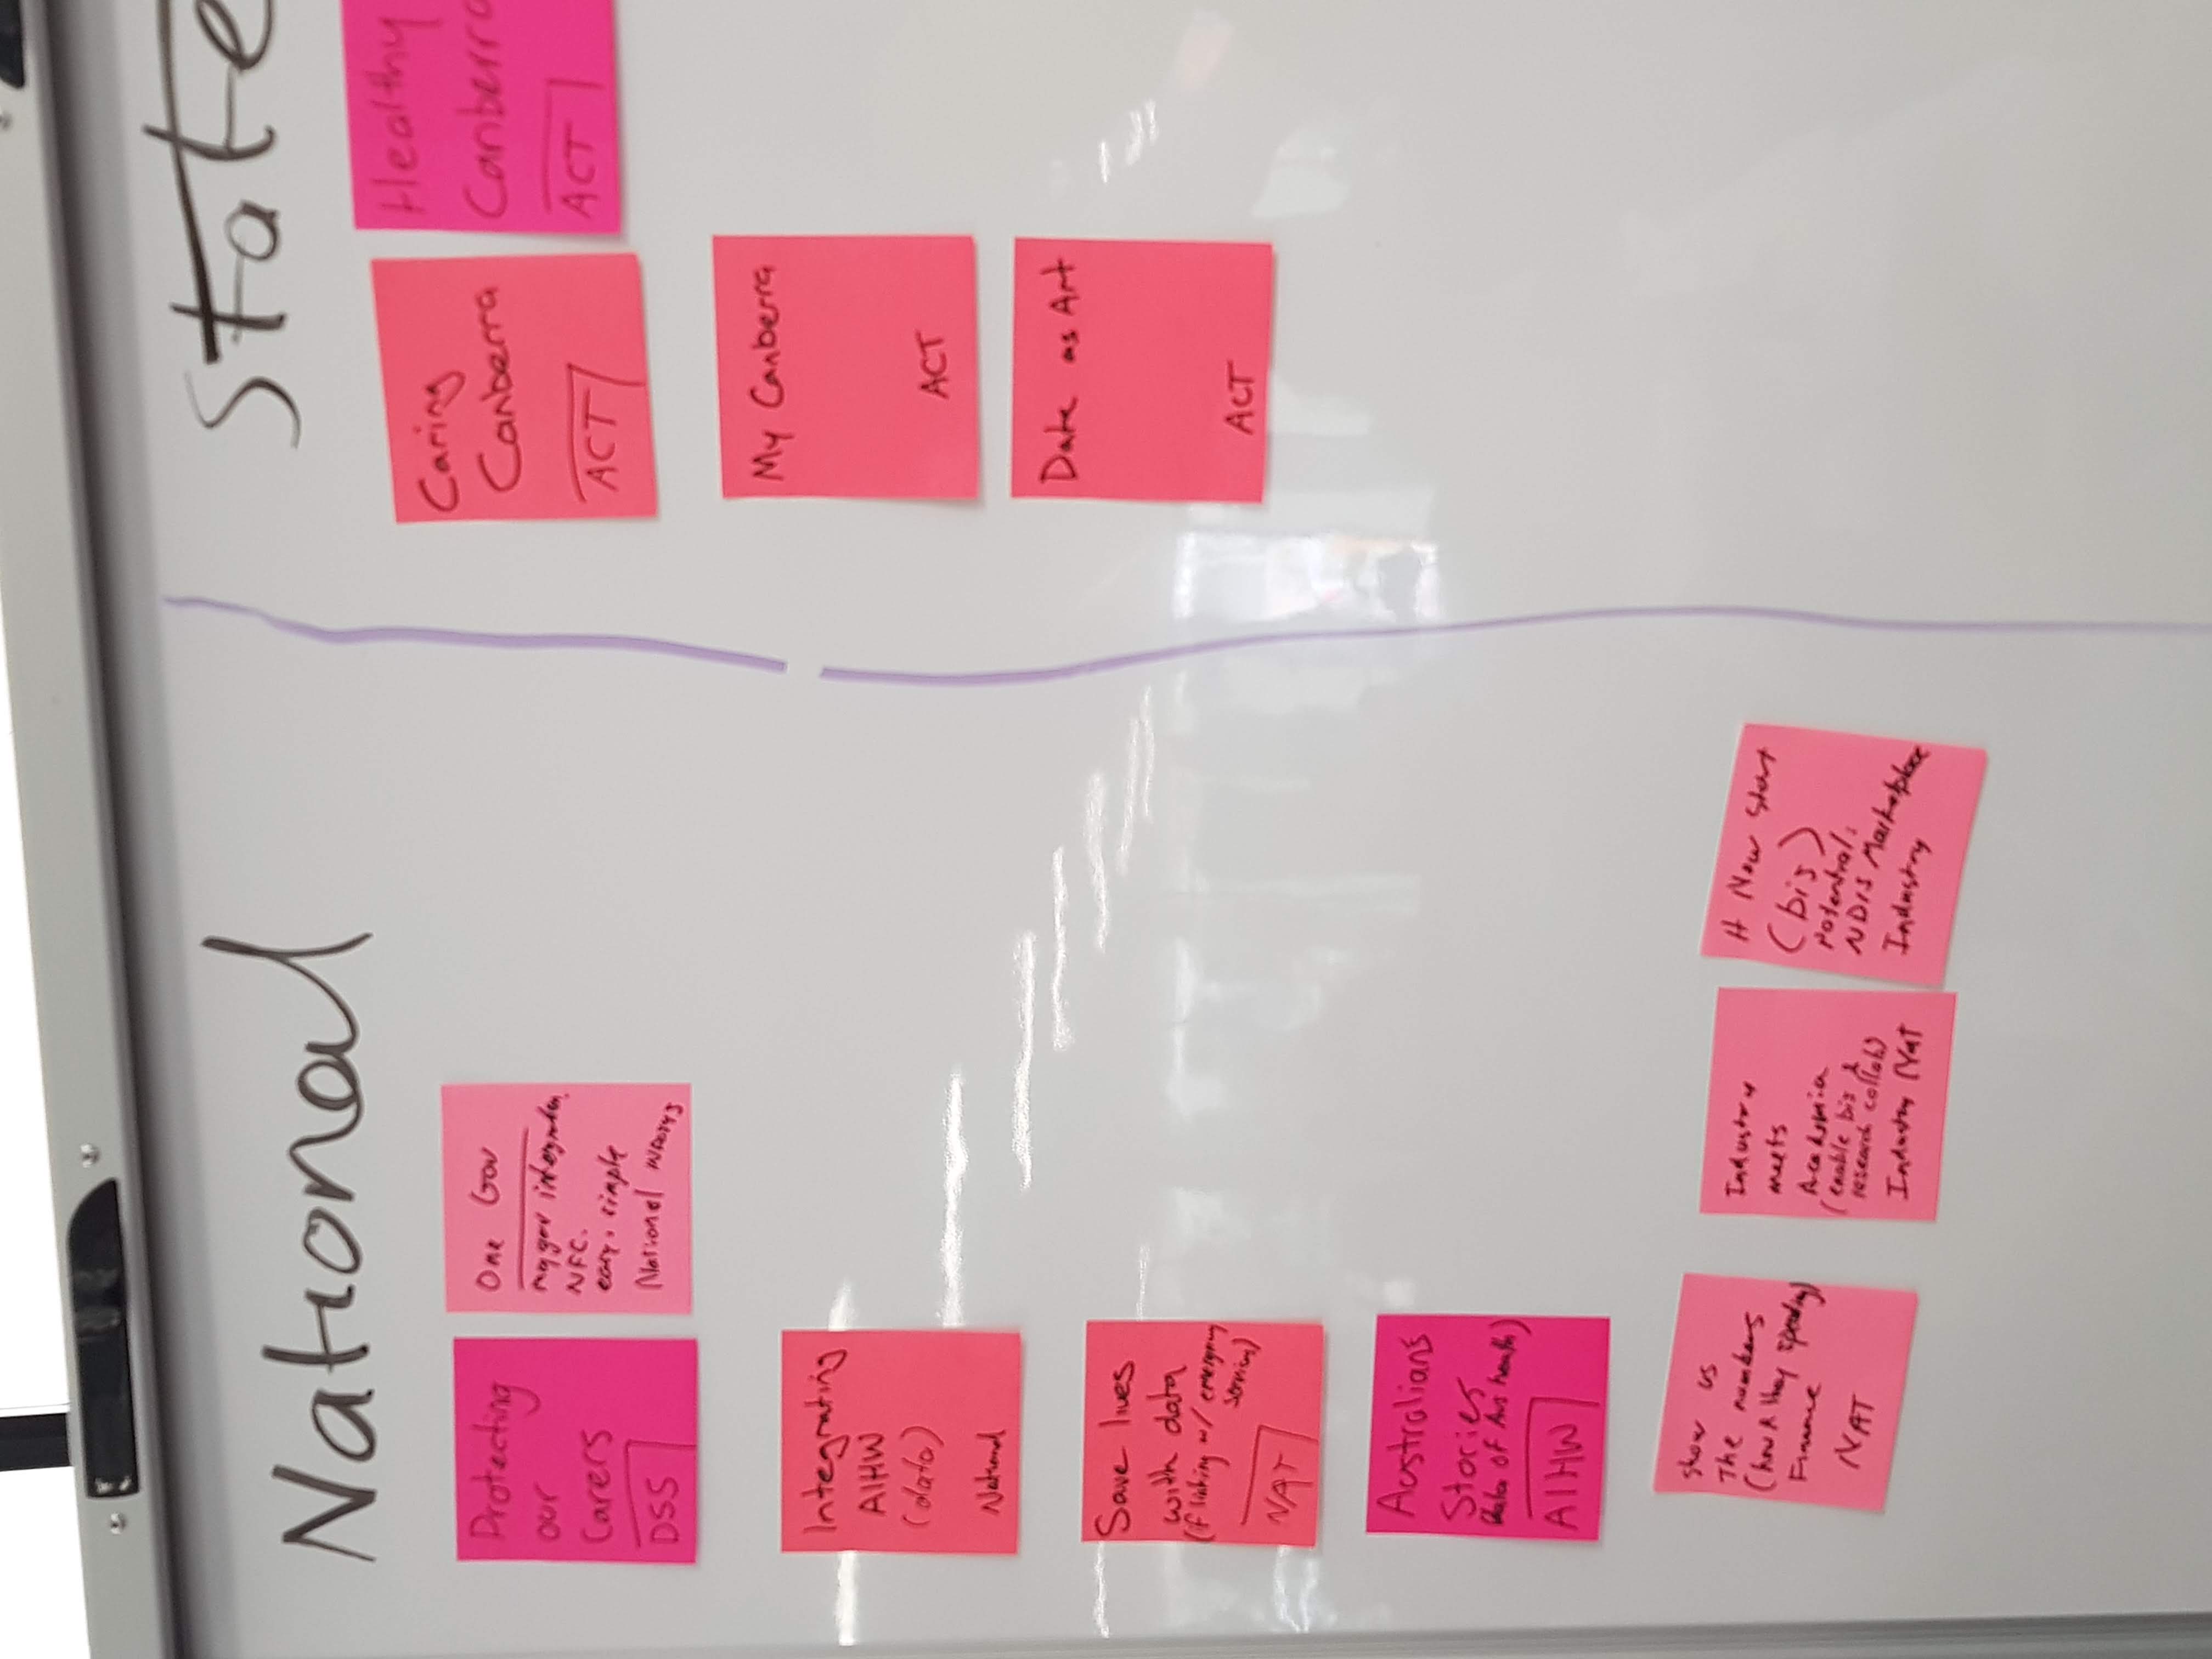 National
State
Protecting
our
Carers
DSS
One Gov
mygov integration
NFC.
easy, simple
National
Integrating
AIHW
(data)
National
Save lives
with data
(if linking w/ emergency
services)
NAT
Australians
Stories
Data of Aus health)
AIHW
Show us
The numbers
(how R they spending)
Finance
NAT
Industry
meets
Academia
(enable bis &
research collab)
Industry Nat
A New Start
(bis)
Potential:
NDIS Marketplace
Industry
Caring
Canberra
ACT
Healthy
Canberra
ACT
My Canberra
ACT
Date as Art
ACT